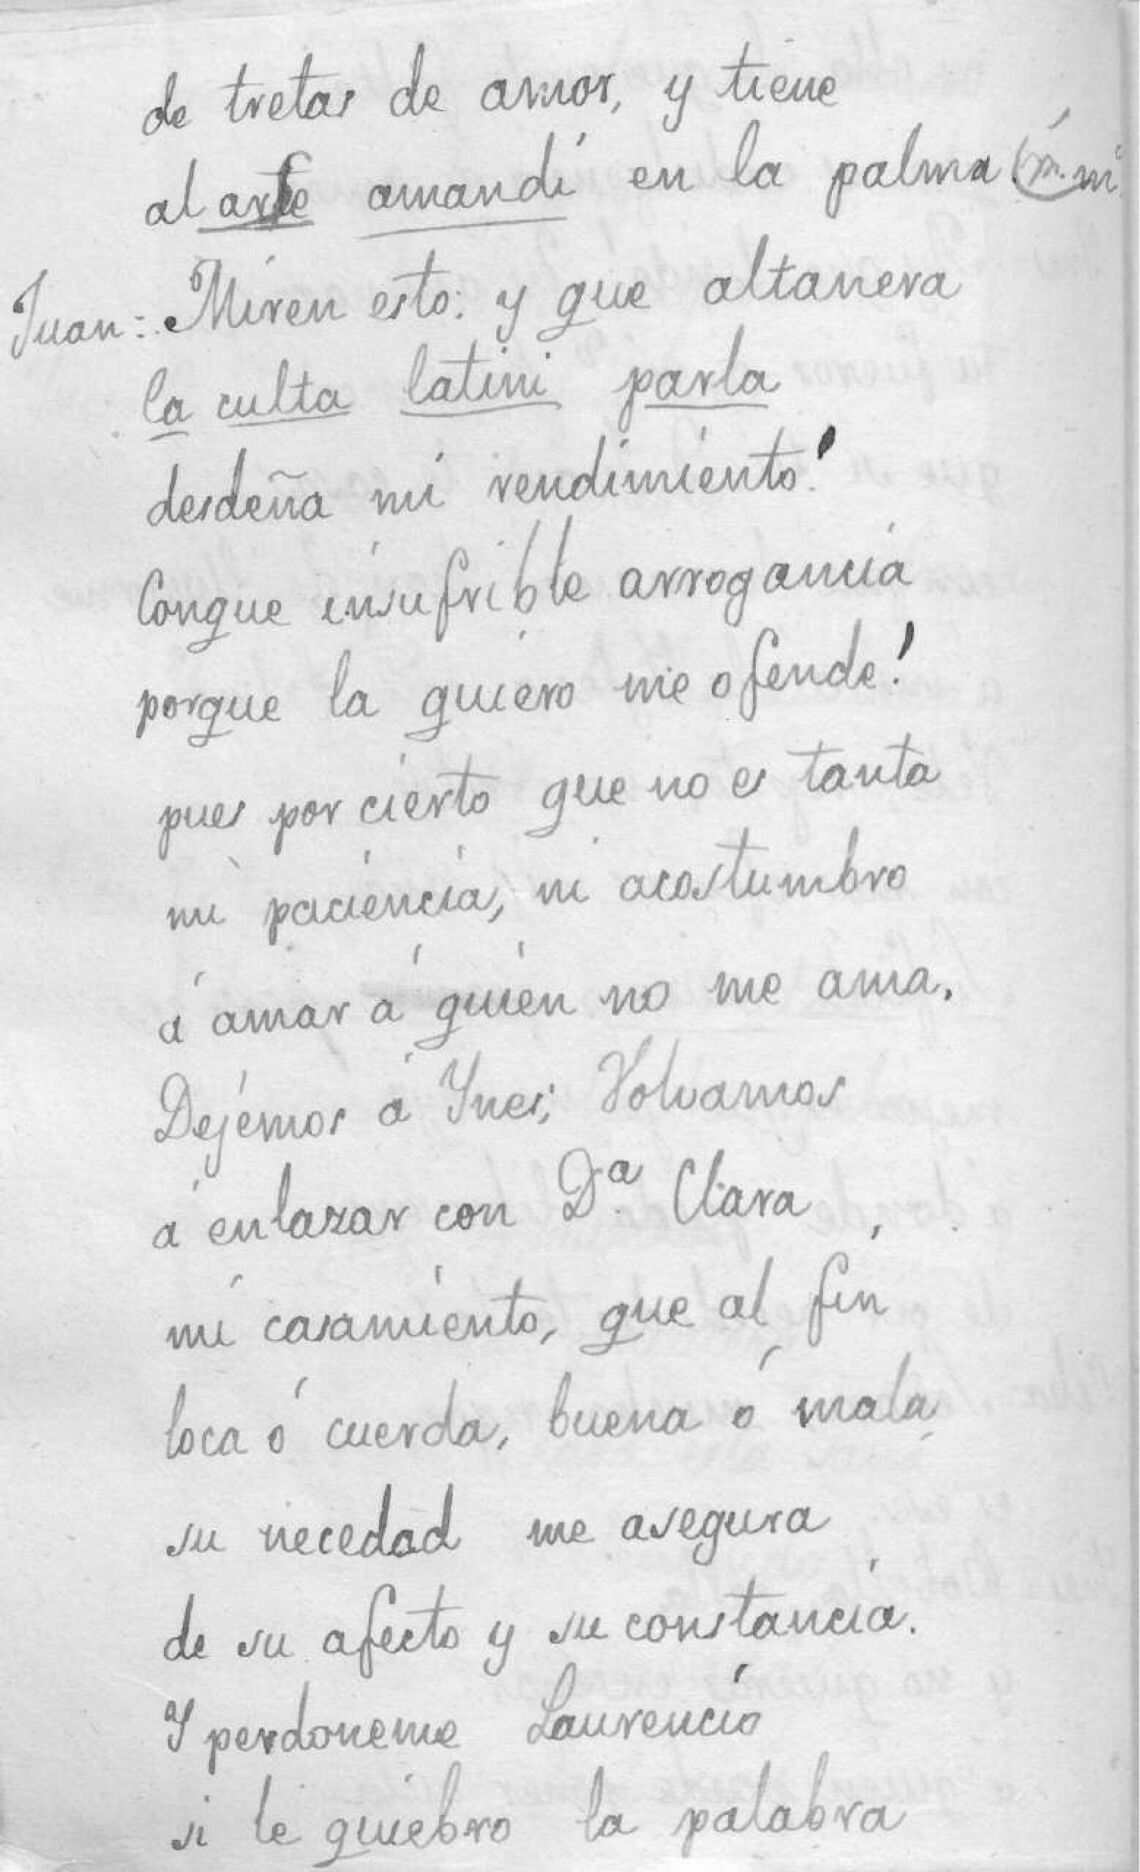 de tretas de amor, y tiene
al arte amandi en la palma
Juan: Miren esto: y que altanera
la culta latini parla
desdeña mi rendimiento!
Conque insufrible arrogancia
porque la quiero me ofende!
pues por cierto que no es tanta
mi paciencia, ni acostumbro
á amar á quien no me ama.
Dejémos á Ynes; Volvamos
á enlazar con Dª Clara,
mi casamiento, que al fin
loca ó cuerda, buena ó mala,
su necedad me asegura
de su afecto y su constancia.
Y perdoneme Laurencio
si le quiebro la palabra